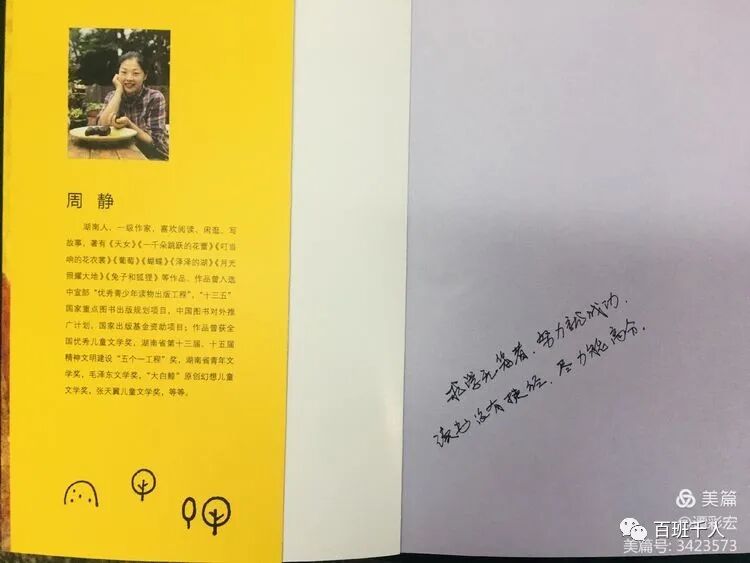 周 静
湖南人,一级作家,喜欢阅读、闲逛、写
故事,著有《天女》《一千朵跳跃的花蕾》《叮当
响的花衣裳》《葡萄》《蝴蝶》《泽泽的湖》《月光
照耀大地》《兔子和狐狸》等作品。作品曾入选
中宣部“优秀青少年读物出版工程”,“十三五”
国家重点图书出版规划项目,中国图书对外推
广计划,国家出版基金资助项目;作品曾获全
国优秀儿童文学奖,湖南省第十三届、十五届
精神文明建设“五个一工程”奖,湖南省青年文
学奖,毛泽东文学奖,“大白鲸”原创幻想儿童
文学奖,张天翼儿童文学奖,等等。
求学无笨者,努力就成功,
读书没有捷径,尽力能高分。
美篇
@谭彩宏
百班千人
美篇号: 3423573